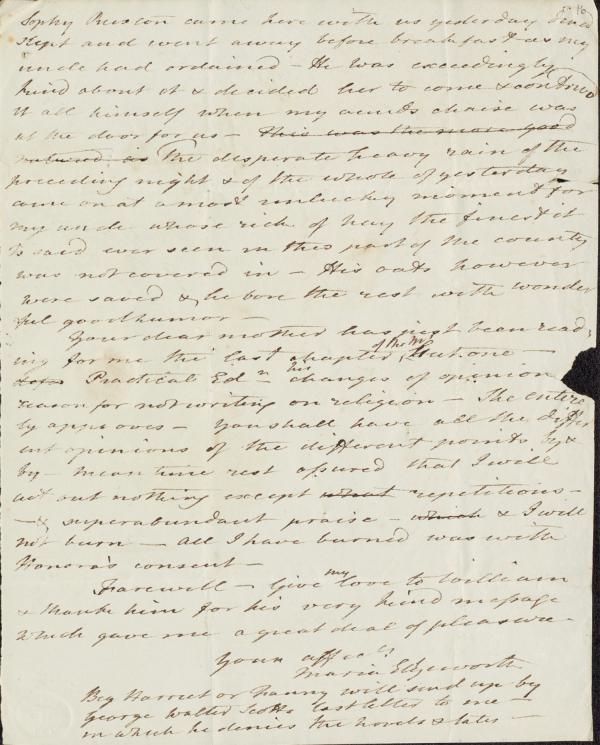 Sophy Ruxton came here with us yesterday and
slept and went away before breakfast as my
uncle had ordained - He was exceedingly
kind about it & decided her to come & contrived
it all himself when my aunts chaise was
at the door for us - This was the more good
natured as The desperate heavy rain of the
preceding night & of the whole of yesterday
came on at a most unlucky moment for
my uncle whose rick of hay the finest it
is said ever seen in this part of the county
was not covered in - His oats however
were saved & he bore the rest with wonder
ful good humor -
Your dear mother has just been read-
ing for me the last chapter of the M but one -
Practical Edn his changes of opinion
reason for not writing on religion - She entire
ly approves - You shall have all the differ
ent opinions of the different points by &
by - mean time rest assured that I will
cut out nothing except what repetitions -
- & superabundant praise - which & I will
not burn - all I have burned was with
Honora's consent -
Farewell - Give my love to William
& thank him for his very kind message
which gave me a great deal of pleasure -
Your affect
Maria Edgeworth
Beg Harriet or Fanny will send up by
George Walter Scotts last letter to me -
in which he denies the novels & tales -